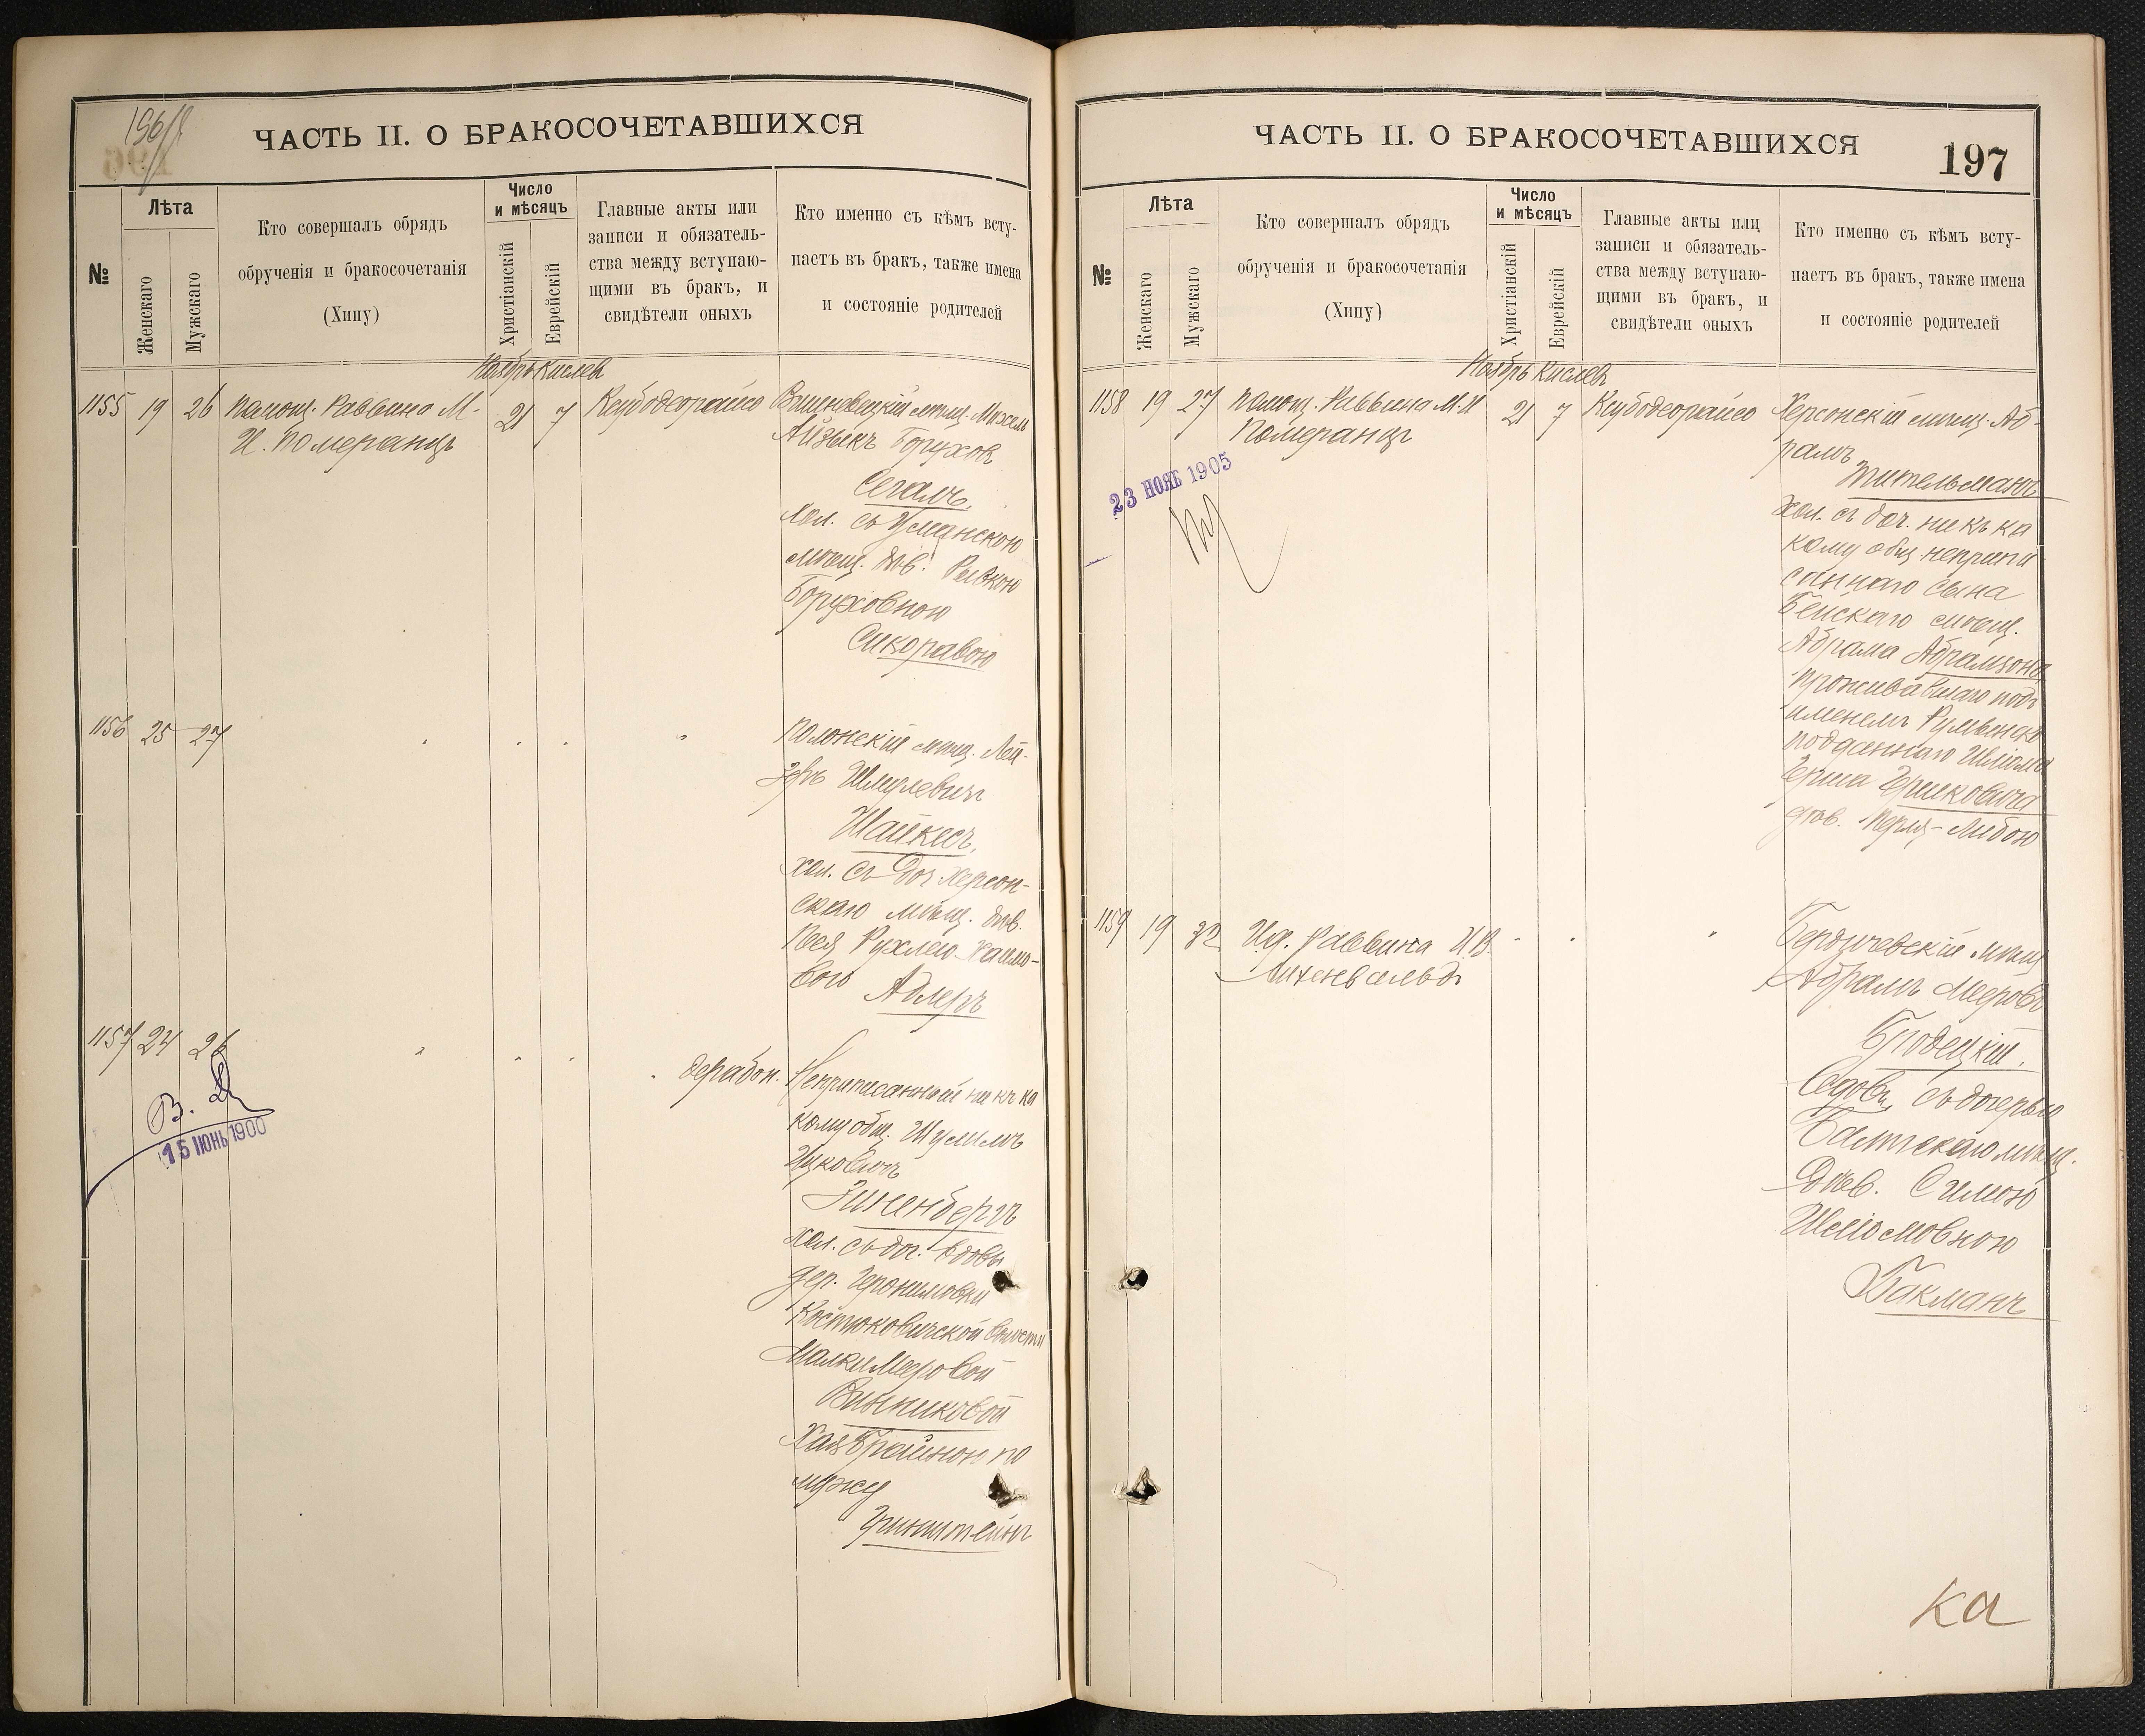 196/1
ЧАСТЬ II. О БРАКОСОЧЕТАВШИХСЯ
№
Лѣта
Женскаго
Мужскаго
Кто совершалъ обрядъ
обрученія и бракосочетанія
(Хипу)
Число
и мѣсяцъ
Христіанскій
Еврейскій
Главные акты или
записи и обязатель-
ства между вступаю-
щими въ бракъ, и
свидѣтели оныхъ
Кто именно съ кѣмъ всту-
паетъ въ бракъ, также имена
и состояніе родителей
Ноябрь Кислев
1155 19 26 Помощ. Раввина М. 21 7 Ксубодеорайсо
И. Померанцъ
мѣщ. Михель
Айзыкъ Борухов
Сегалъ,
хол. съ Уманскою
мѣщ. дѣв. Ривкою
Боруховною
Сикоравою
1156 25 27
Полонскій мѣщ. Лей-
зеръ Шмулевичъ
Шайкесъ,
хол. съ доч. Херсон-
скаго мѣщ. дѣв.
Песя Рухлею Хаимо-
вою Адлеръ
1157 24 26
В. Д
15 ІЮНЬ 1900
дерабон. Неприписанный ни къ ка
кому общ. Шулимъ
Ицковичъ
Зиненбергъ
хол. съ доч. вдовы
дер. Иеронимовки
Костюковичской волости
Малки Меровой
Винниковой
Хая Брайною по
мужу
Гринштейнъ
ЧАСТЬ II. О БРАКОСОЧЕТАВШИХСЯ
197
№
Лѣта
Женскаго
Мужскаго
Кто совершалъ обрядъ
обрученія и бракосочетанія
(Хипу)
Число
и мѣсяцъ
Христіанскій
Еврейскій
Главные акты или
записи и обязатель-
ства между вступаю-
щими въ бракъ, и
свидѣтели оныхъ
Кто именно съ кѣмъ всту-
паетъ въ бракъ, также имена
и состояніе родителей
Ноябрь Кислев
1158 19 27 Помощ. Раввина М. И 21 7 Ксубодеорайсо
Померанцъ
23 НОЯБ 1905
Херсонскій мѣщ. Аб-
рамъ
Тительманъ
хол. съ доч. ни къ ка
кому общ. неприпи
саннаго сына
мѣщ.
Абрама Абрамзона,
проживавшаго подъ
именемъ Румынско
подданнаго Шліома
Герша Гершковича
дѣв. Перля-Либою
1159 19 32 И.д. Раввина И. В.
Лихенвальдъ
Бердичевскій мѣщ
Абрамъ Меровъ
Бродецкій,
вдов. съ дочерью
Балтскаго мѣщ.
дѣв. Симою
Шліомовною
Бакманъ
ка